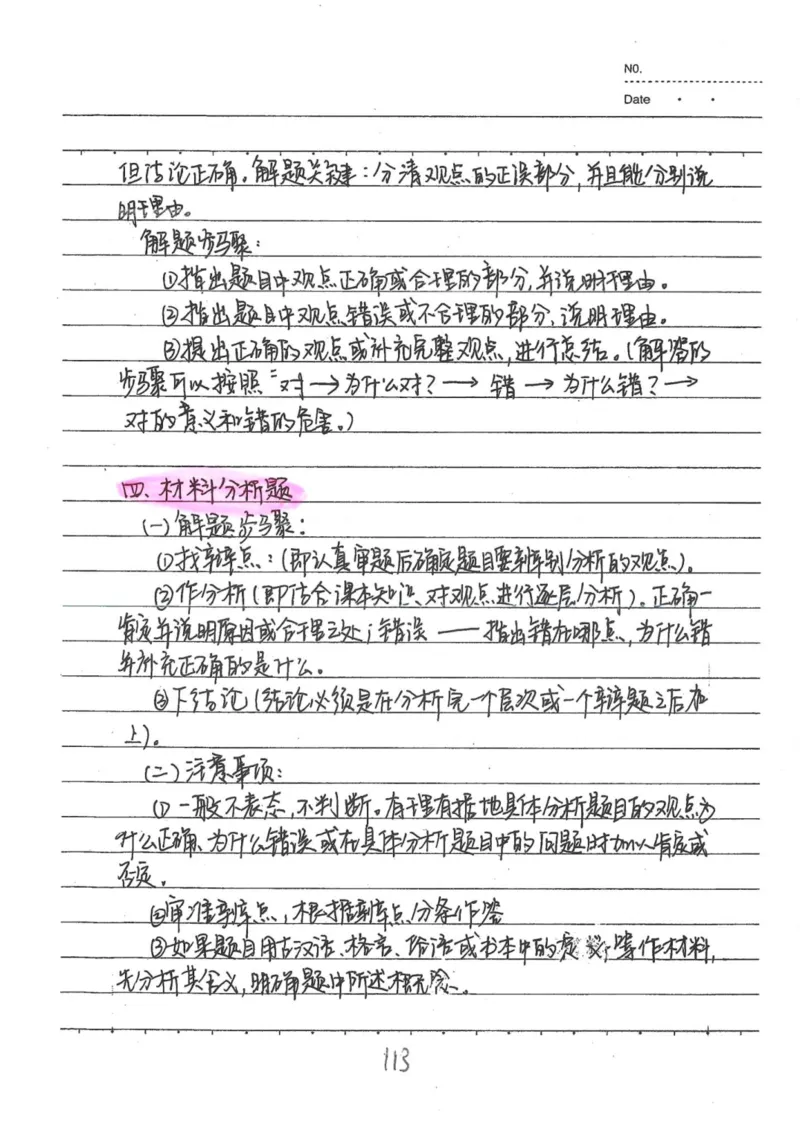 NO.
Date
但结论正确。解题关键：分清观点的正误部分，并且能分别说
明理由。
解题步骤：
①指出题目中观点正确或合理的部分，并说明理由。
②指出题目中观点错误或不合理的部分，说明理由。
③提出正确的观点或补充完整观点，进行总结。（解答的
步骤可以按照"对→为什么对？→错→为什么错？→
对的意义和错的危害。）
四、材料分析题
(一)解题步骤：
①找辨点：（即认真审题后确定题目要辨别分析的观点）。
②作分析（即结合课本知识，对观点进行逐层分析）。正确一
肯定并说明原因或合理之处；错误——指出错在哪点，为什么错
并补充正确的是什么。
③下结论（结论必须是在分析完一个层次或一个辨题之后加
上）。
(二)注意事项：
①一般不表态，不判断。有理有据地具体分析题目的观点为
什么正确、为什么错误或在具体分析题目中的问题时加以肯定或
否定。
②审准辨点，根据辨点分条作答
③如果题目用古汉语、格言、俗语或书本中的意义等作材料，
先分析其含义，明确题中所述概念。
113